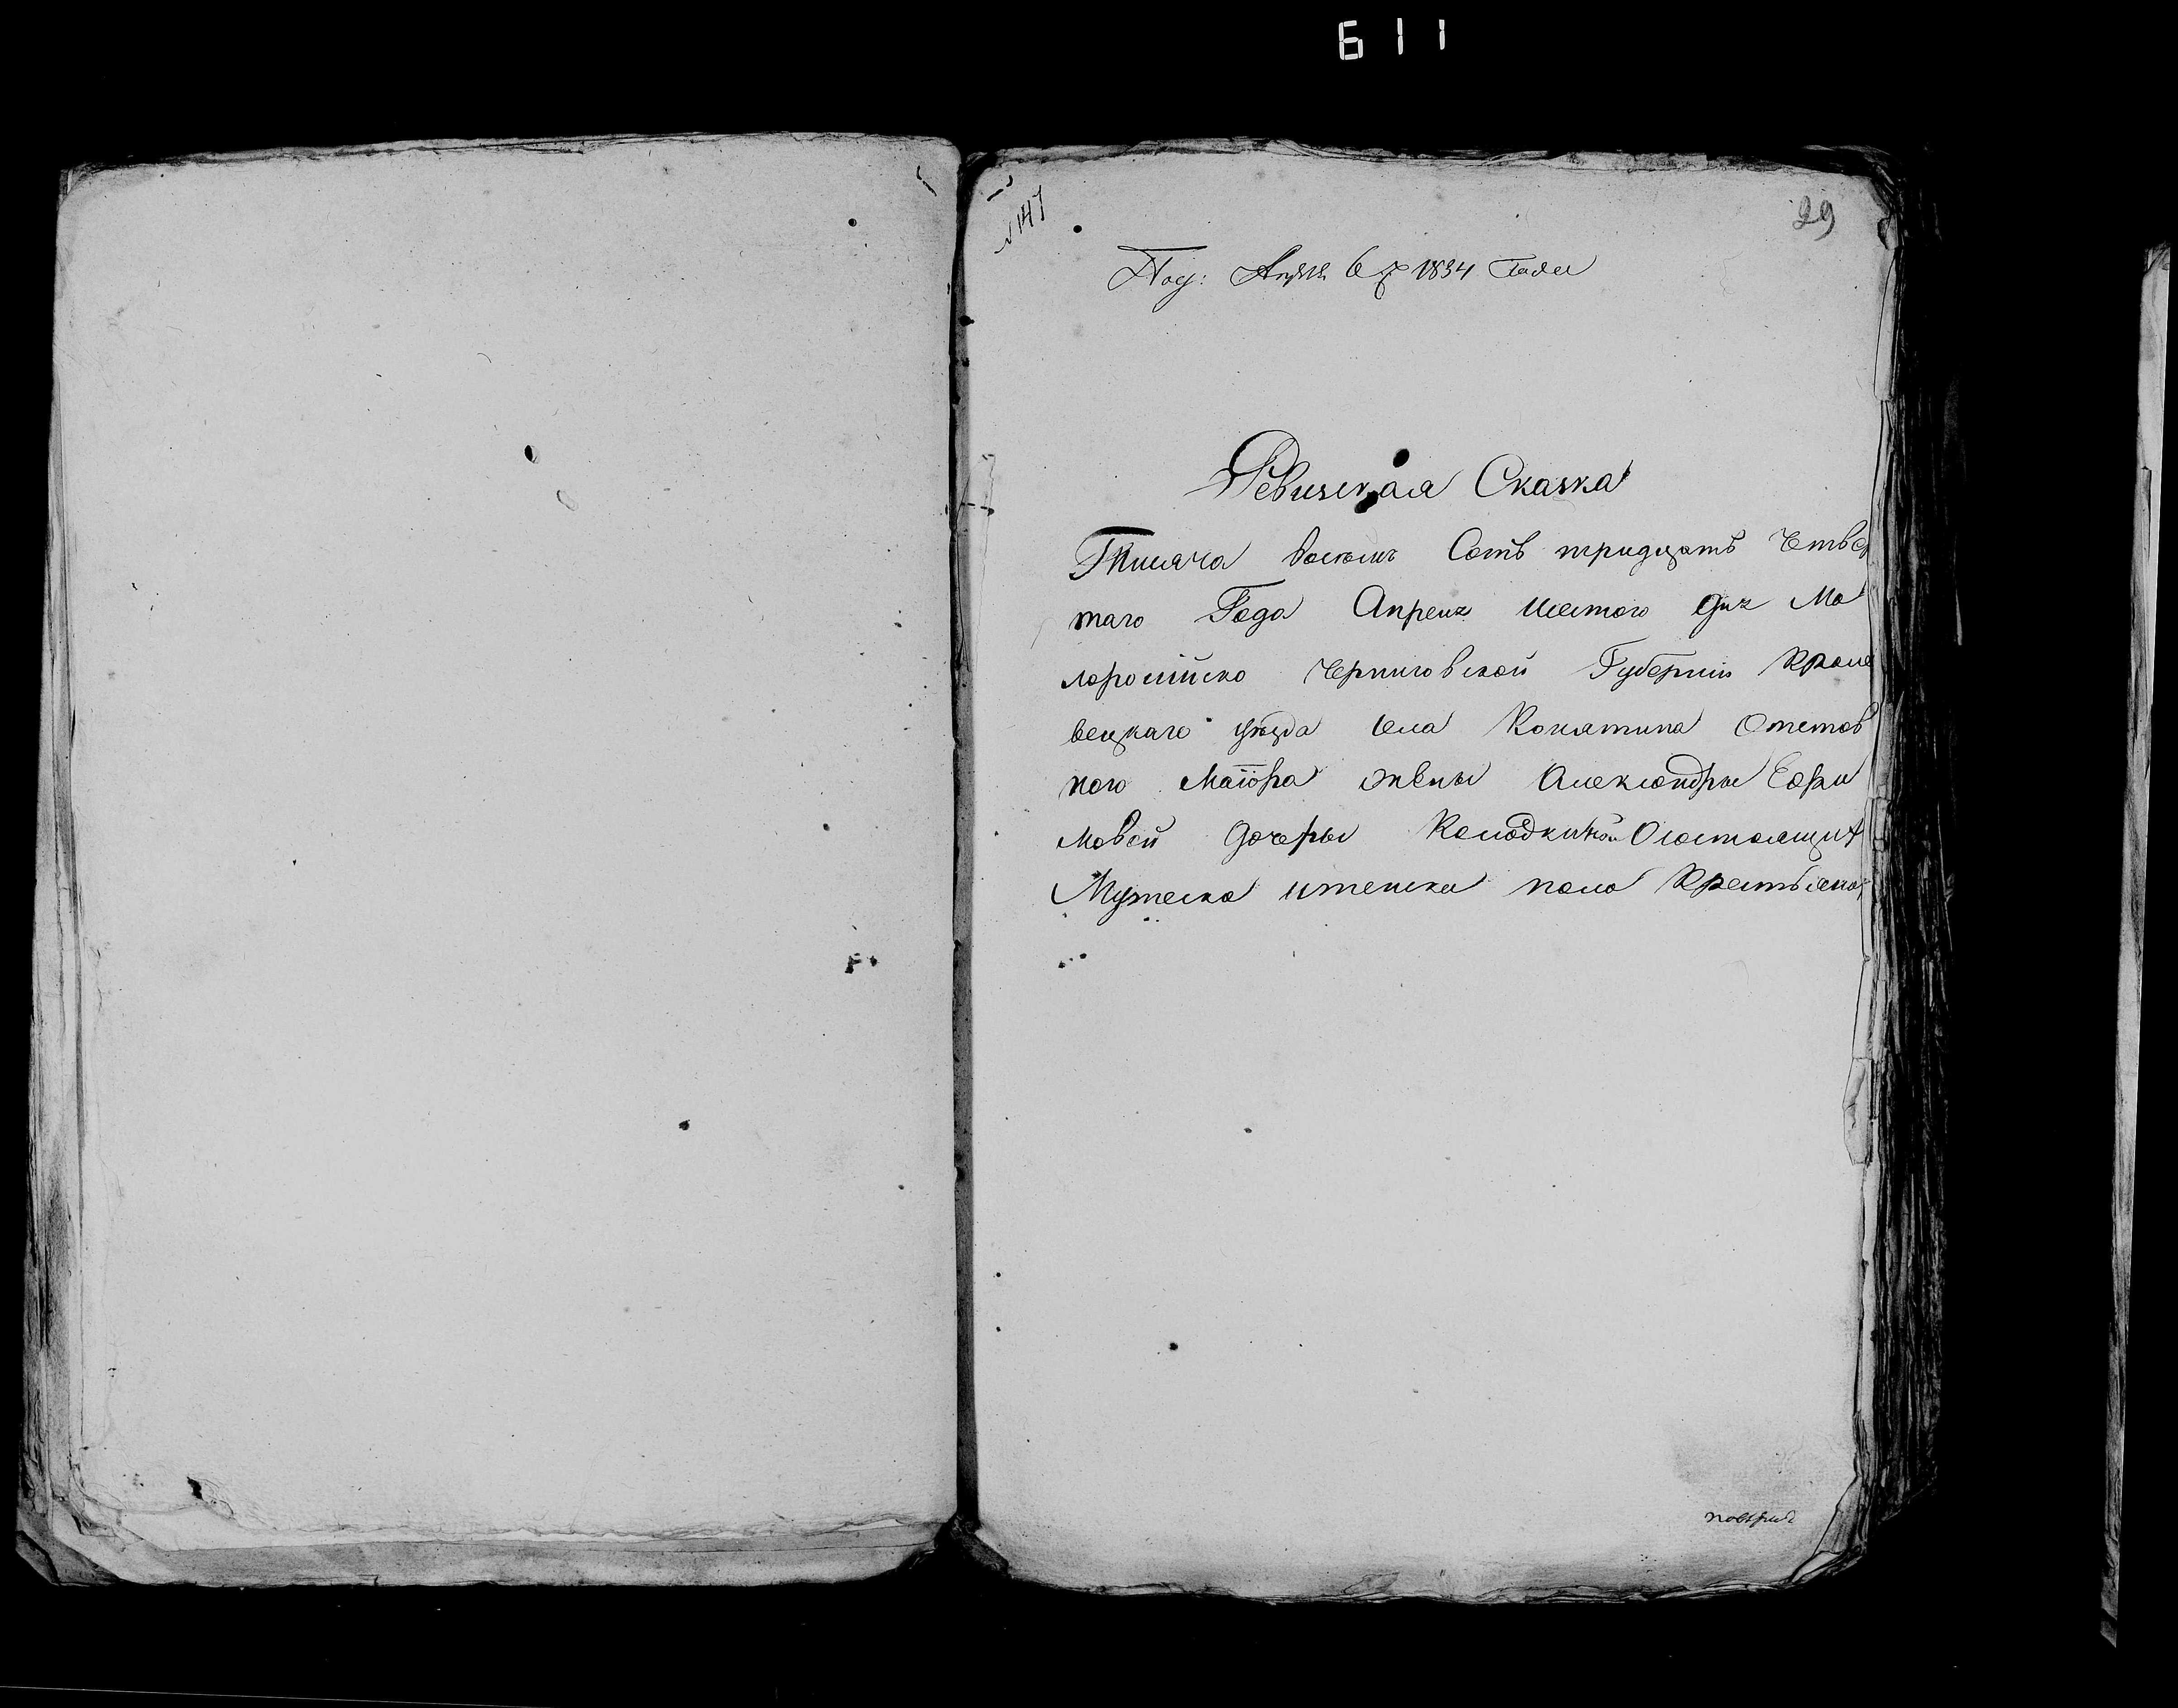 611
№ 147
29
Под: Апреля 6 д 1834 Года
Ревизская Сказка
Тысяча восемь Сотъ тридцатъ Четвер
таго Года Апреля шестого дня Ма
лоросийско Черниговской Губернии Кроле
вецкаго уезда села Конятина Отстав
ного Маиора жены Александры Ефи
мовой дочеры Колодкиной О состоящих
Мужеска и женска пола Крестьянах
поверил